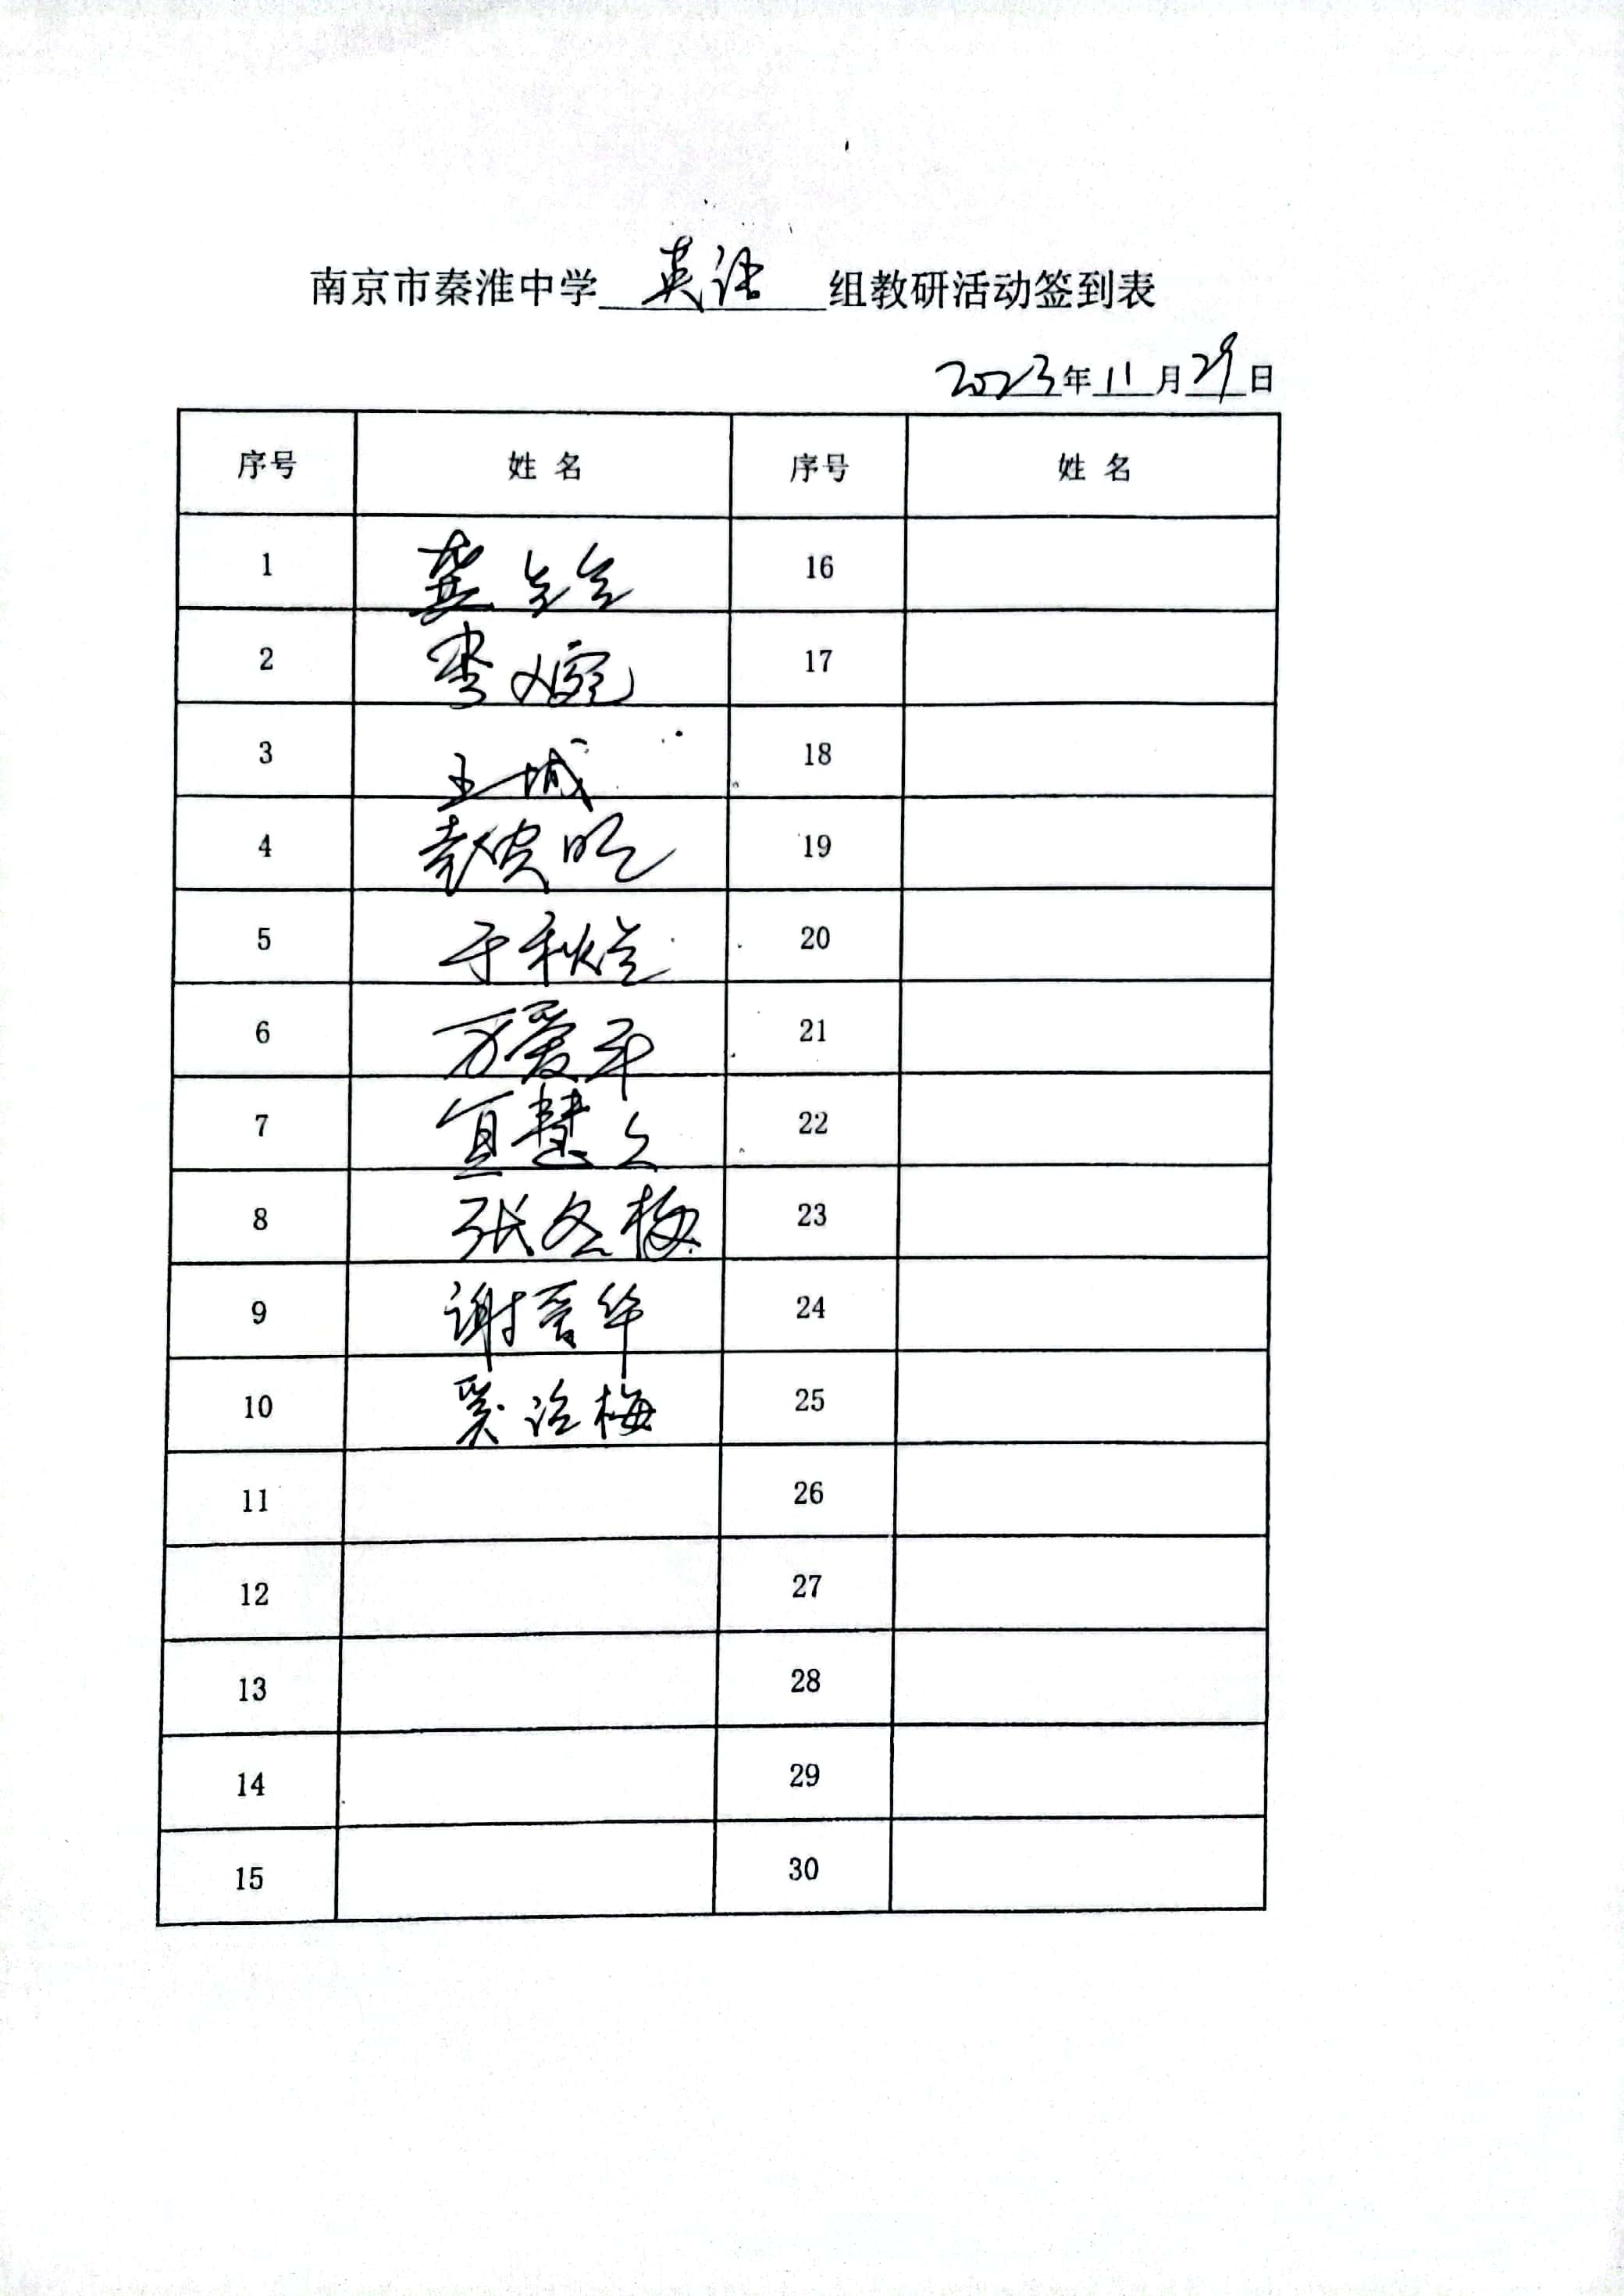 南京市秦淮中学 英语 组教研活动签到表
2023年11月29日
序号 姓名 序号 姓名
1 龚 16
2 李婉 17
3 王城 18
4 19
5 于秋兰 20
6 万爱平 21
7 宜慧 22
8 张冬梅 23
9 谢晋华 24
10 奚治梅 25
11 26
12 27
13 28
14 29
15 30